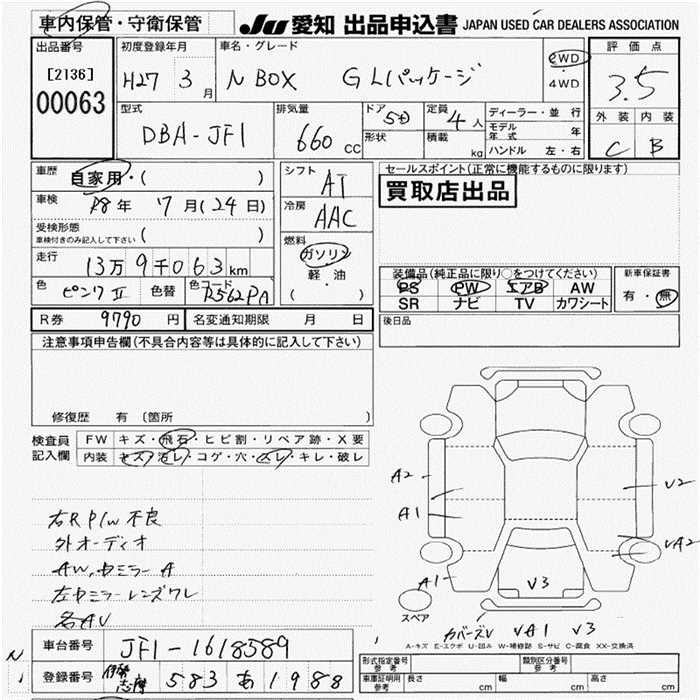 車内保管・守衛保管
JU 愛知 出品申込書 JAPAN USED CAR DEALERS ASSOCIATION
出品番号 [2136] 00063
初度登録年月 H27 3月
車名・グレード N BOX GLパッケージ
2WD・4WD
評価点 3.5
外装 C 内装 B
型式 DBA-JF1
排気量 660 cc
ドア 5D 形状
定員 4人 積載 kg
ディーラー・並行
モデル年式 年
ハンドル 左・右
車歴 自家用・( )
車検 R8年 7月(24日)
受検形態 車検付きのみ記入して下さい ( )
走行 13万9千063km
色 ピンクII 色替 色コード R562PA
シフト AT
冷房 AAC
燃料 ガソリン 軽・油 ( )
セールスポイント(正常に機能するものに限ります)
買取店出品
装備品(純正品に限り○をつけてください)
PS PW エアB AW
SR ナビ TV カワシート
新車保証書 有・無
R券 9790円 名変通知期限 月 日
後日品
注意事項申告欄(不具合内容等は具体的に記入して下さい)
修復歴 有 〔箇所 〕
検査員記入欄
FW キズ・飛石・ヒビ割・リペア跡・X要
内装 キズ・汚レ・コゲ・穴・スレ・キレ・破レ
右R P/W 不良
外オーディオ
AW,
左
ミラーレンズワレ
A2
A1
A1
V2
VA2
V3
スペア
VA1 V3
A-キズ E-エクボ U-凹み W-補修跡 S-サビ C-腐食 XX-交換済
車台番号 JF1-1618589
登録番号 伊勢志摩 583 あ 1988
型式指定番号 参考
類別区分番号 参考
車庫証明用 参考 長さ cm 幅 cm 高さ cm